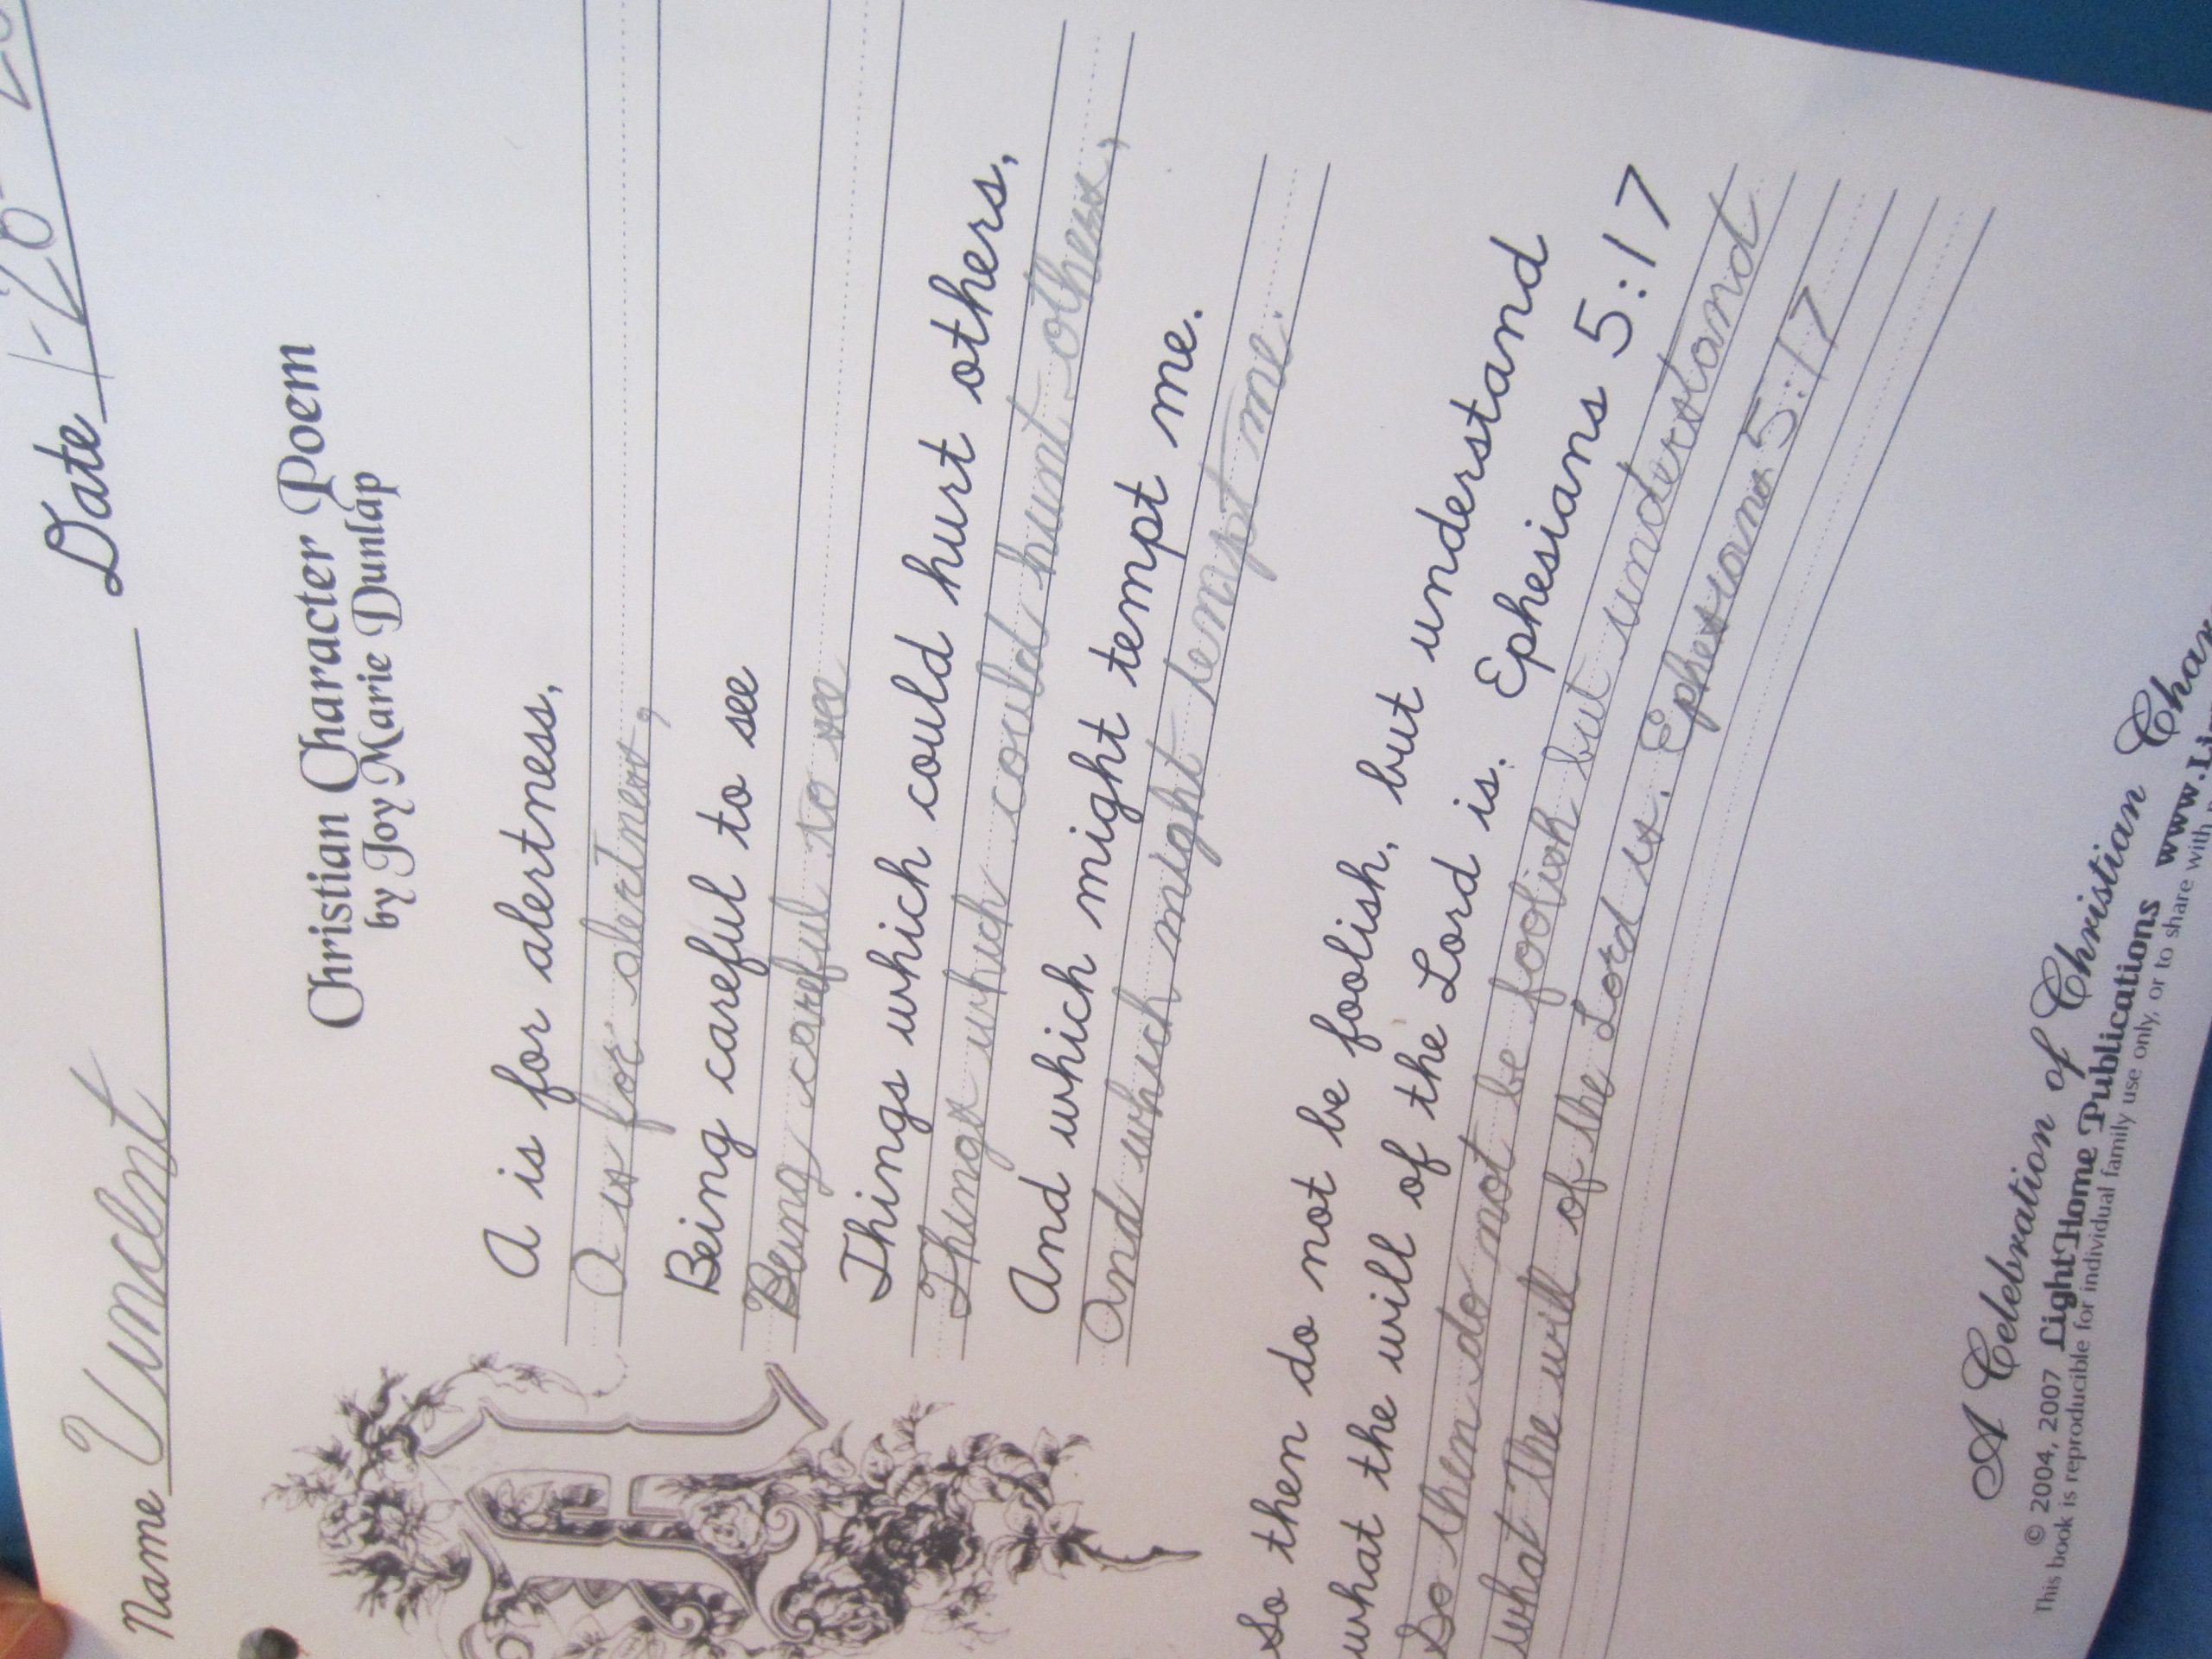 Name Vincent Date 1-20-
Christian Character Poem
by Joy Marie Dunlap
A is for alertness,
A is for alertness,
Being careful to see
Being careful to see
Things which could hurt others,
Things which could hurt others,
And which might tempt me.
And which might tempt me.
So then do not be foolish, but understand
what the will of the Lord is. Ephesians 5:17
So then do not be foolish but understand
what the will of the Lord is. Ephesians 5:17
A Celebration of Christian Char
© 2004, 2007 LightHome Publications www.Li
This book is reproducible for individual family use only, or to share with